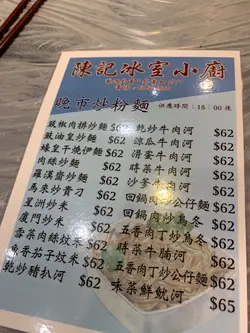 陳記冰室小廚
晚市炒粉麵 供應時間：18:00後
豉椒肉排炒麵 $62 乾炒牛肉河 $62
豉油皇炒麵 $62 涼瓜牛肉河 $62
蠔皇干燒伊麵 $62 滑蛋牛肉河 $62
肉絲炒麵 $62 時菜牛肉河 $62
羅漢齋炒麵 $62 沙爹牛肉河 $62
馬來炒貴刁 $62 回鍋肉炒公仔麵 $62
星洲炒米 $62 回鍋肉炒烏冬 $62
廈門炒米 $62 五香肉丁炒烏冬 $62
雪菜肉絲炆米 $62 時菜牛腩河 $62
魚香茄子炆米 $62 五香肉丁炒公仔麵 $62
乾炒豬扒河 $62 味菜鮮魷河 $65